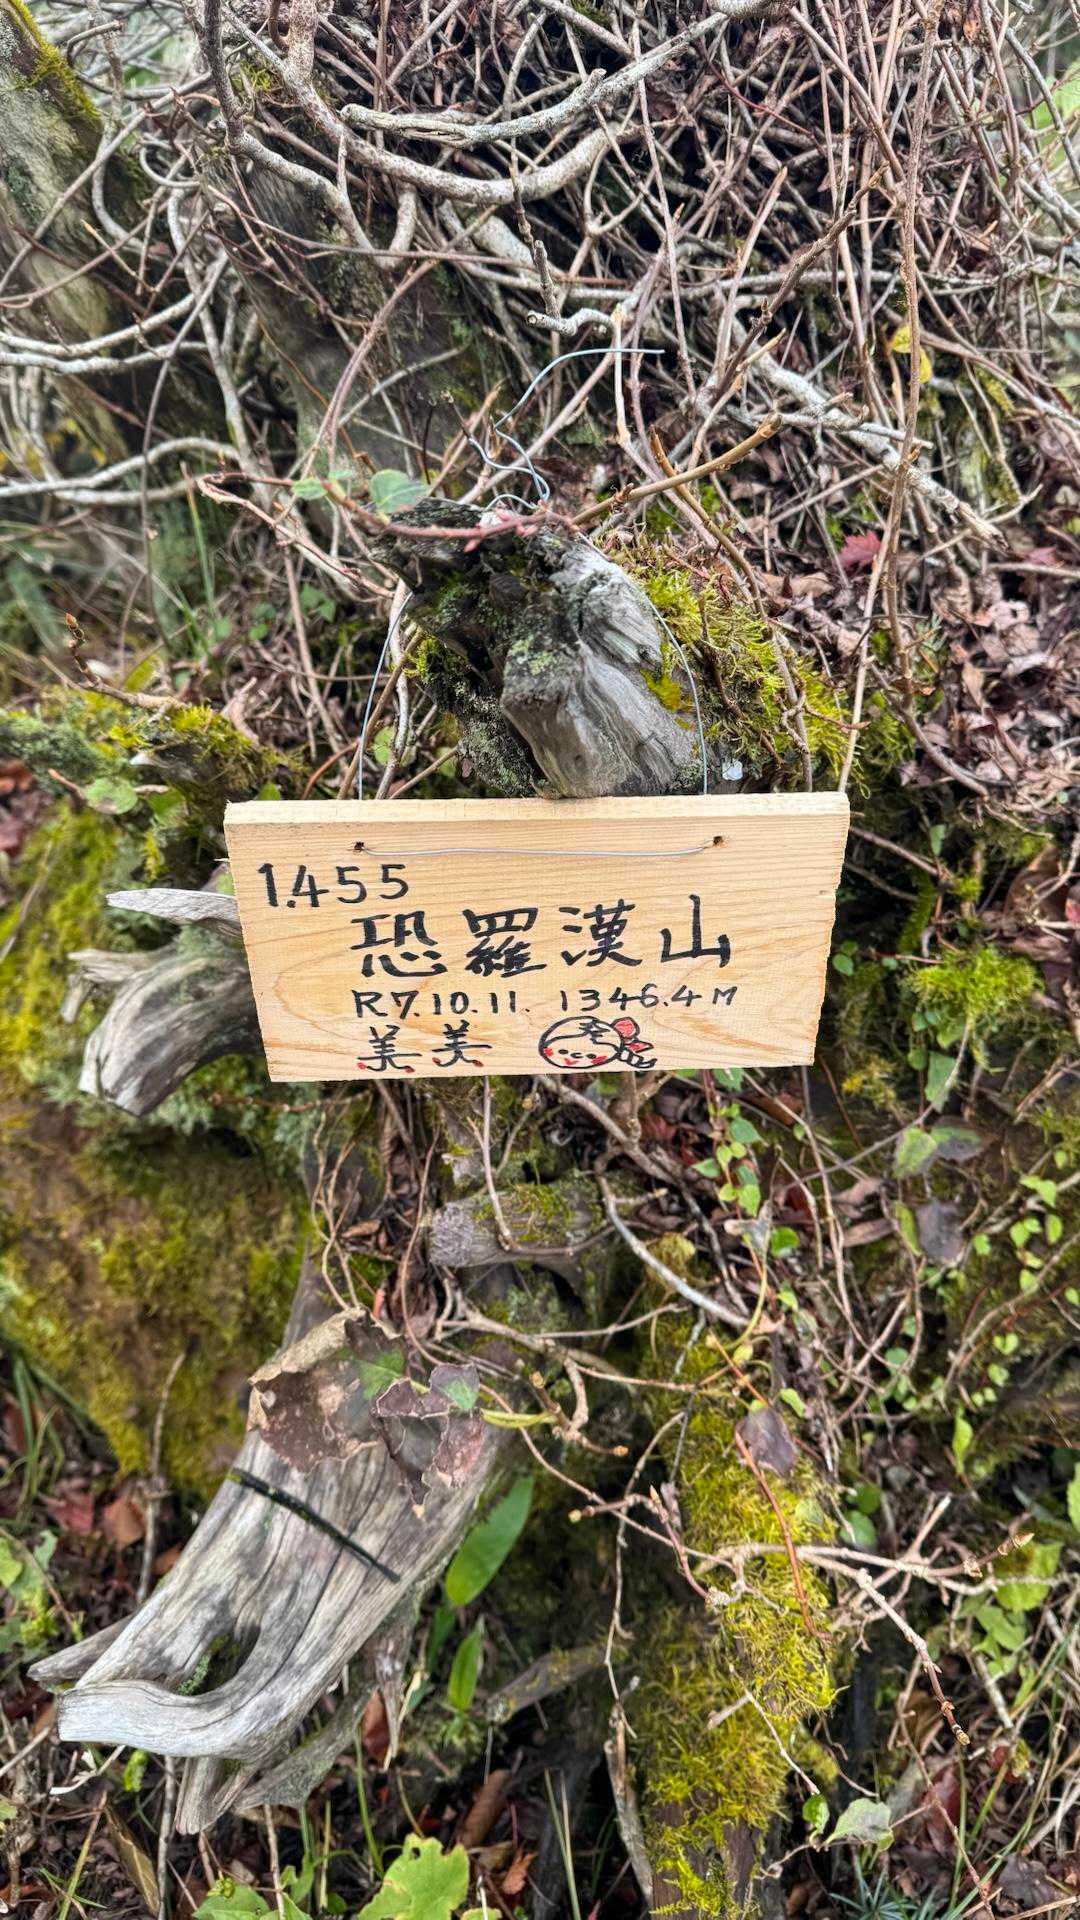 1.455
恐羅漢山
R7.10.11. 1346.4M
美美